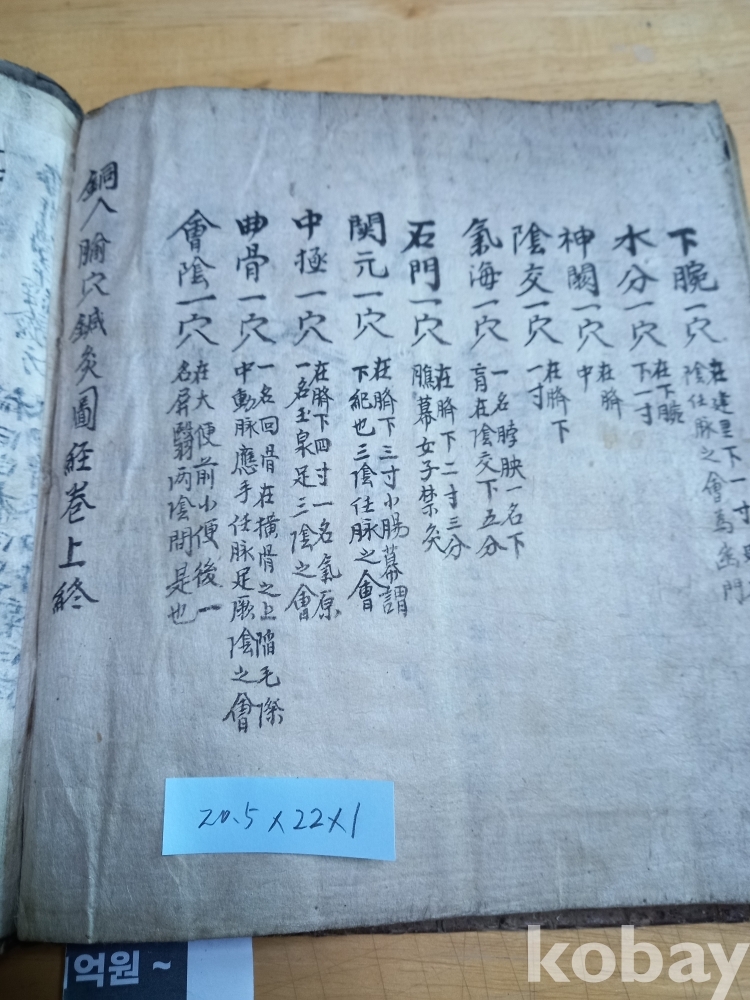 下腕一穴
在建里下一寸
陰任脉之會爲幽門
水分一穴
在下脘
下一寸
神闕一穴
在臍
中
陰交一穴
在臍下
一寸
氣海一穴
一名脖胦一名下
肓在陰交下五分
石門一穴
在臍下二寸三分
膲募女子禁灸
関元一穴
在臍下三寸小腸募謂
下紀也三陰任脉之會
中極一穴
在臍下四寸一名氣原
一名玉泉足三陰之會
曲骨一穴
一名回骨在橫骨之上陷毛際
中動脉應手任脉足厥陰之會
會陰一穴
在大便前小便後一
名屏翳兩陰間是也
銅人腧穴鍼灸圖経卷上終
20.5×22×1
억원 ~
kobay